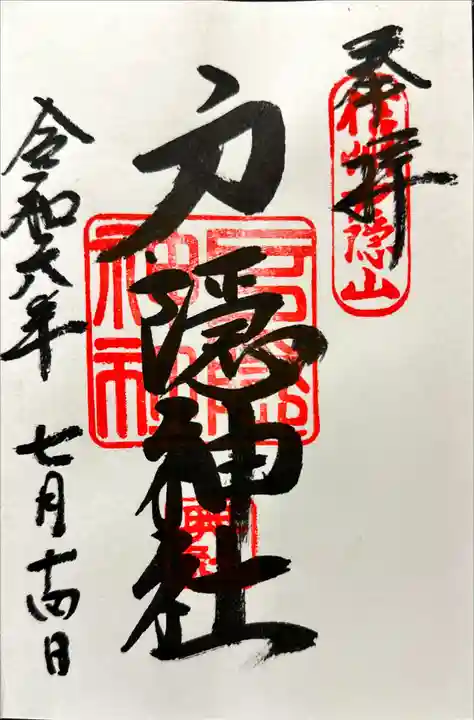 奉拝
信州戸隠山
戸隠神社
戸隠神社
令和六年 七月十四日